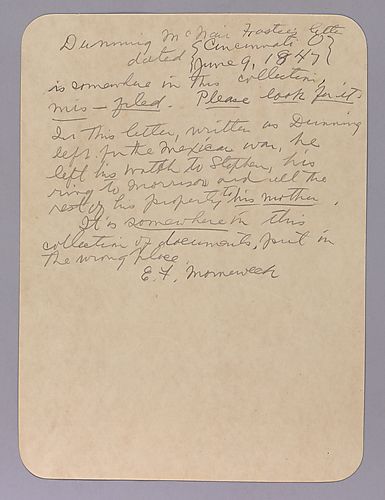 Dunning McNair Foster's letter
dated {Cincinnati O}
{June 9, 1847}
is somewhere in this collection,
mis-filed. Please look for it
In this letter, written as Dunning
left for the Mexican war, he
left his watch to Stephen, his
ring to Morrison and all the
rest of his property to his mother.
It is somewhere in this
collection of documents, put in
the wrong place.
E. F. Morneweck